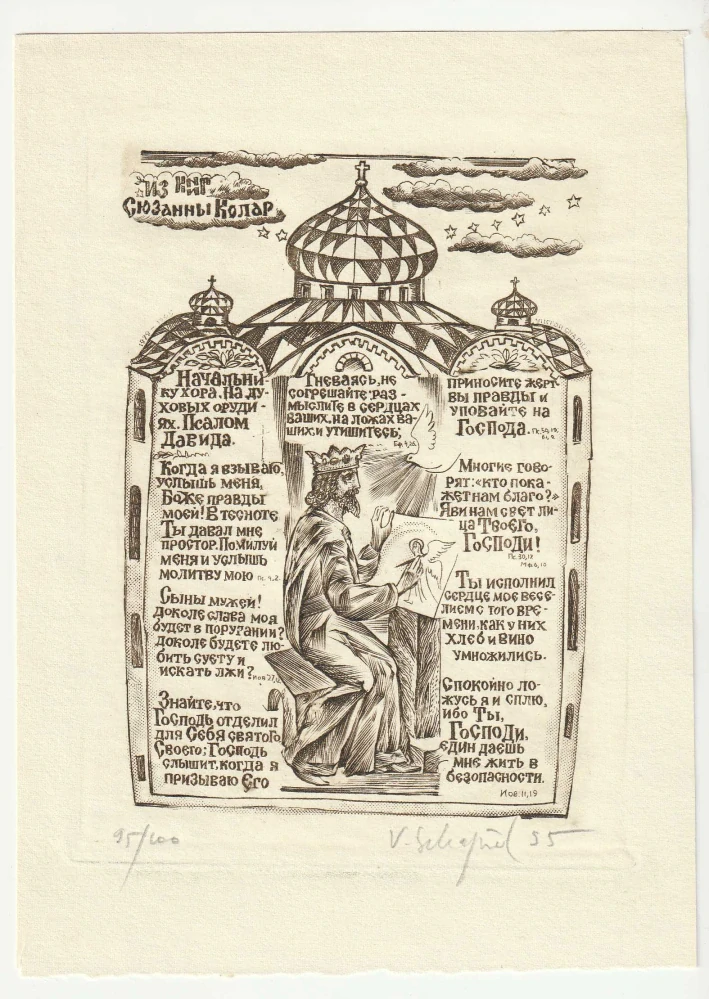 Из книг
Сюзанны Колар
Начальни-
ку хора. На ду-
ховых оруди-
ях. Псалом
Давида.
Когда я взываю,
услышь меня,
Боже правды
моей! В тесноте
Ты давал мне
простор. Помилуй
меня и услышь
молитву мою Пс. 4, 2
Сыны мужей!
доколе слава моя
будет в поругании?
доколе будете лю-
бить суету и
искать лжи?
Знайте, что
Господь отделил
для Себя святого
Своего; Господь
слышит, когда я
призываю Его
Гневаясь, не
согрешайте: раз-
мыслите в сердцах
ваших, на ложах ва-
ших, и утишитесь;
Еф. 4, 26
приносите жерт-
вы правды и
уповайте на
Господа.
Многие гово-
рят: «кто пока-
жет нам благо?»
Яви нам свет ли-
ца Твоего,
Господи!
Ты исполнил
сердце мое весе-
лием с того вре-
мени, как у них
хлеб и вино
умножились.
Спокойно ло-
жусь я и сплю,
ибо Ты,
Господи,
един даешь
мне жить в
безопасности.
Иов. 11, 19
95/100
95